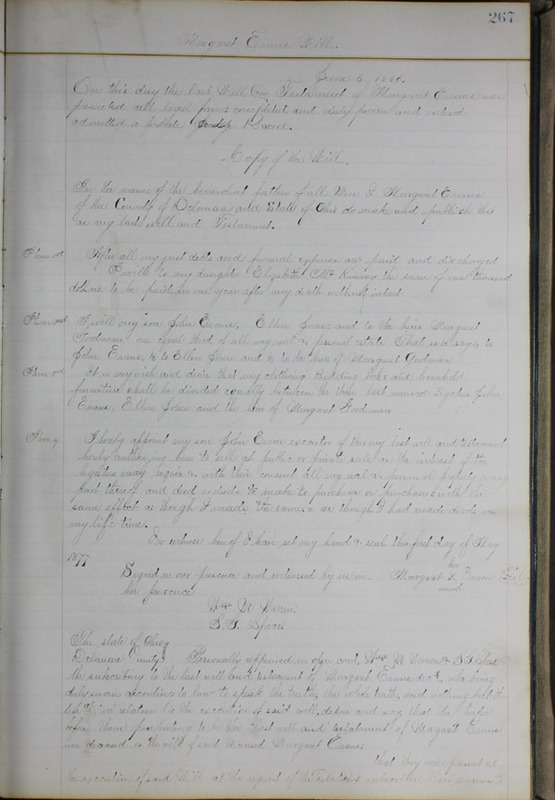 267
Margaret Evans Will.
June 5, 1880.
On this day the last Will and Testament of Margaret Evans was
presented all legal forms complied and duly proven and ordered
admitted to probate & Record.
Copy of the Will.
In the name of the benevolent father of all Men I Margaret Evans
of the County of Delaware and State of Ohio do make and publish this
as my last will and Testament.
Item 1st After all my just debts and funeral expenses are paid and discharged
I will to my daughter Elizabeth Mc Kinney the sum of one thousand
dollars to be paid in one year after my death without interest
Item 2nd I will my son John Evans, Ellen Jones and to the heirs Margaret
Goodman one equal third of all my real & personal estate that is to say ⅓ to
John Evans, ⅓ to Ellen Jones and ⅓ to the heirs of Margaret Goodman
Item 3rd It is my wish and desire that my clothing Bedding books and household
furniture shall be divided equally between the three last named legatees John
Evans, Ellen Jones and the heirs of Margaret Goodman
Item 4 I hereby appoint my son John Evans executor of this my last will and testament
hereby authorizing him to sell at public or private sale as the interest of the
legatees may require & with their consent all my real & personal property or any
part thereof and deed or deeds to make to purchaser or purchasers with the
same effect as though I made the same or as though I had made deeds in
my life time.
In witness hereof I have set my hand & seal this first day of May
1877
Signed in our presence and witnessed by us in her presence
Margaret X Evans
her
mark
Wm M Warren
S. T.
The State of Ohio
Delaware County Personally appeared in open court, Wm M Warren & S T
the subscribing to the last will and testament of Margaret Evans dec'd, who being
duly sworn according to law to speak the truth, the whole truth, and nothing but the
truth, in relation to the execution of said will, depose and say that the paper
before them purporting to be the last will and testament of Margaret Evans
now deceased is the will of said deceased Margaret Evans
that they was present at
the execution of said Will at the request of the Testatrix subscribed their names to